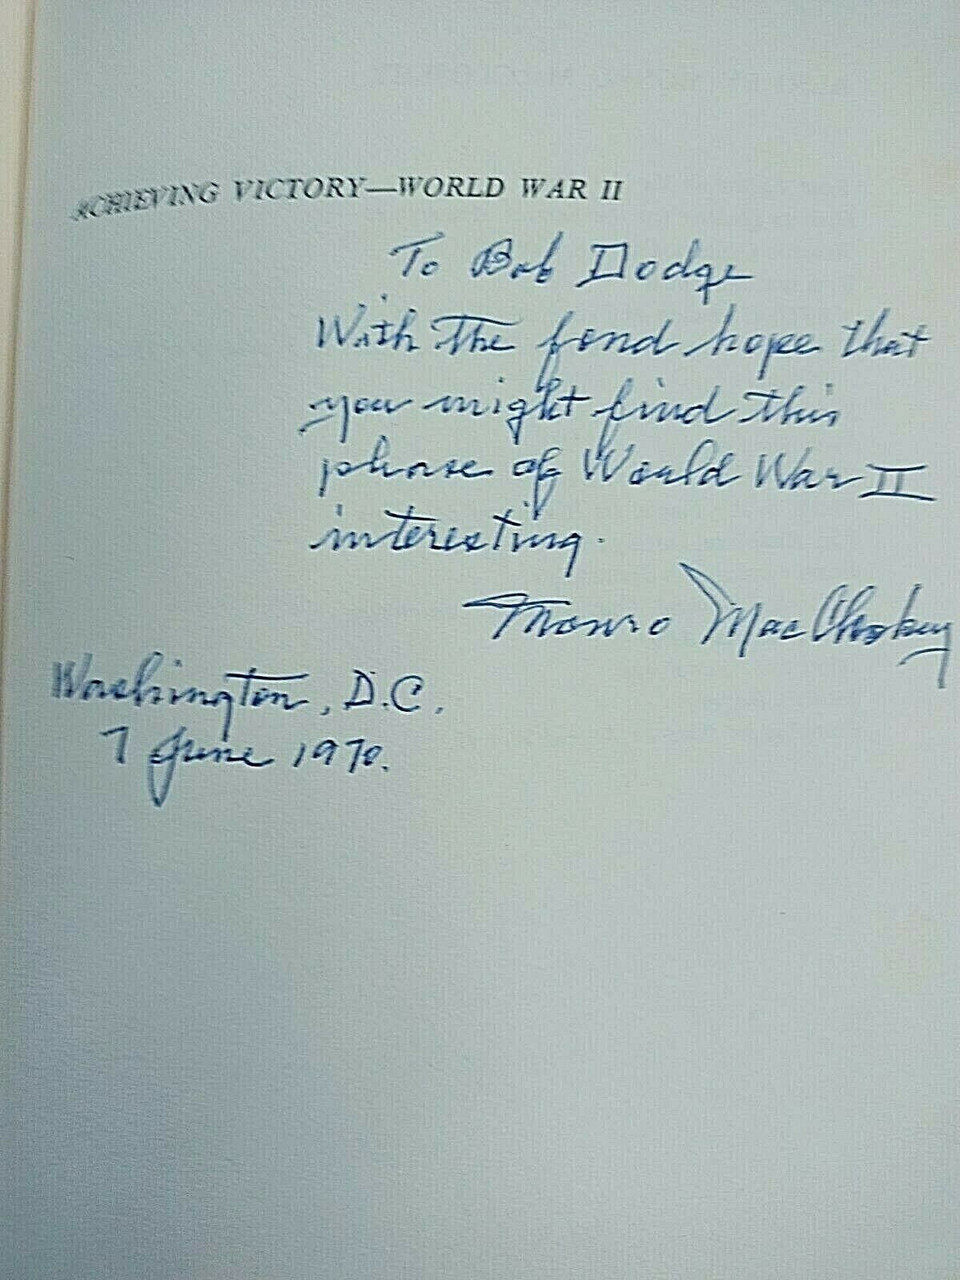 ACHIEVING VICTORY—WORLD WAR II
To Bob Dodge
With the fond hope that
you might find this
phase of World War II
interesting.
Monro MacCloskey
Washington, D.C.
7 June 1970.